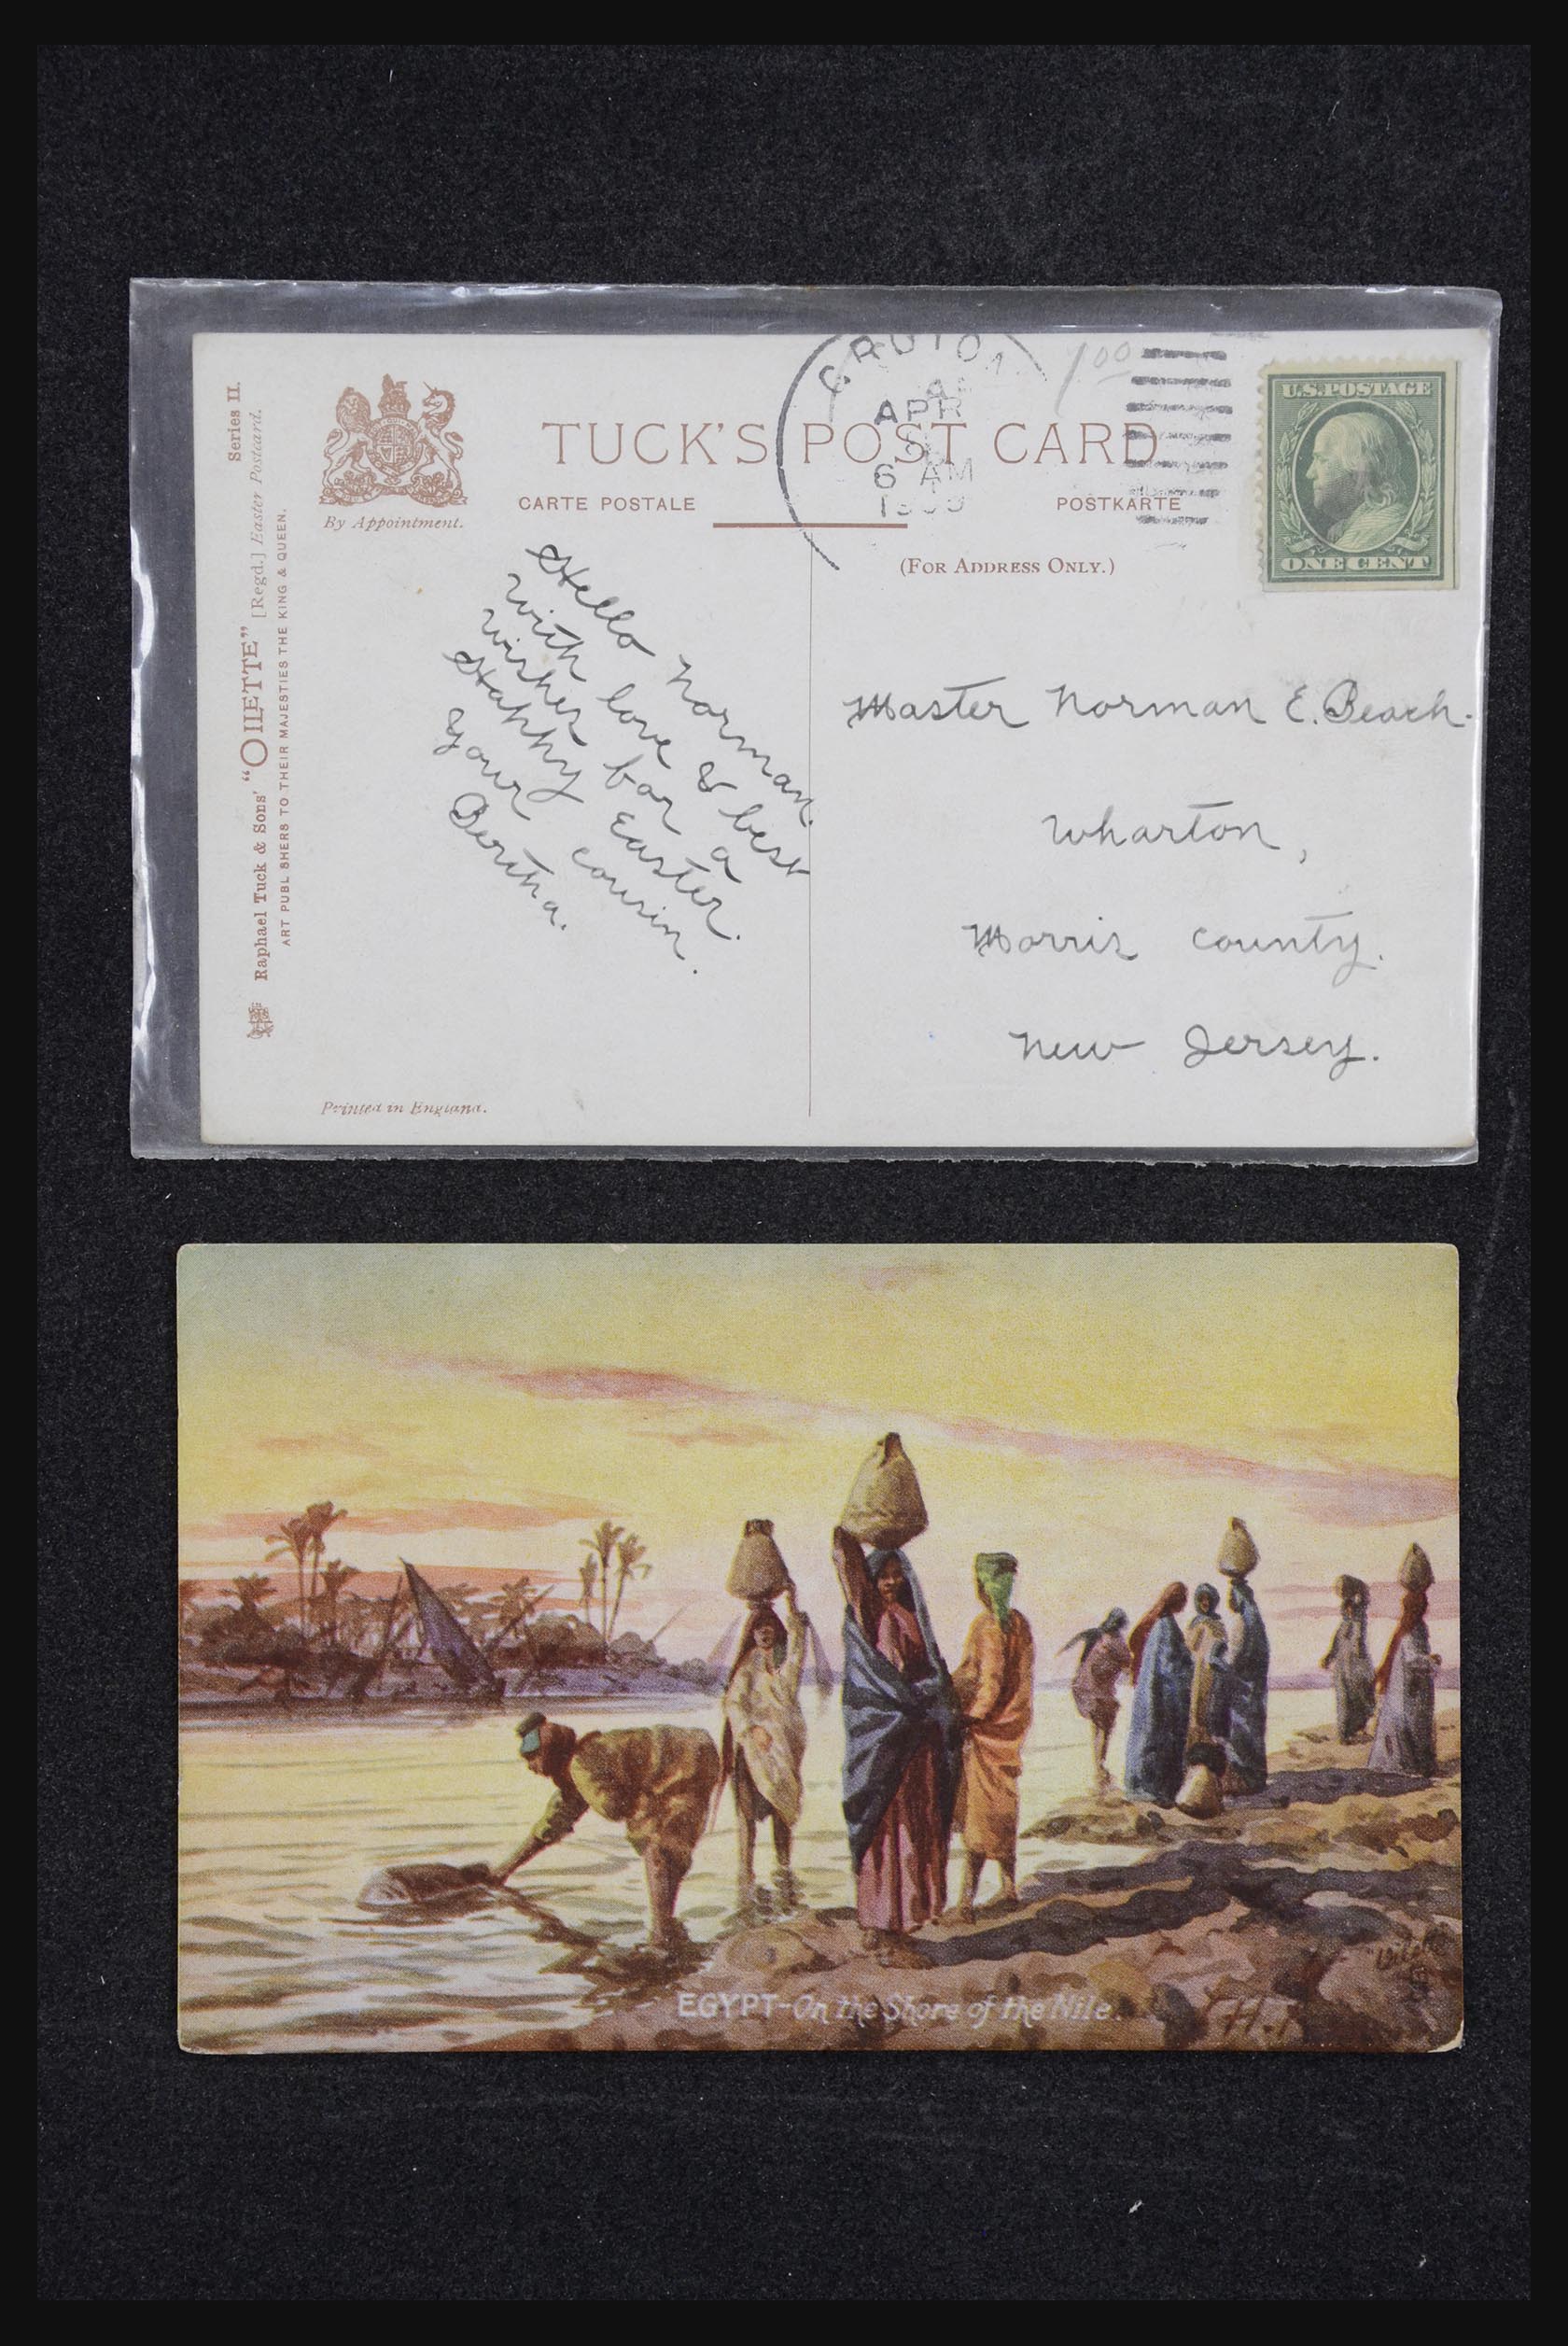 Series II.
Raphael Tuck & Sons' "OILETTE" [Regd.] Easter Postcard.
ART PUBL SHERS TO THEIR MAJESTIES THE KING & QUEEN.
By Appointment.
TUCK'S POST CARD
CARTE POSTALE
POSTKARTE
(FOR ADDRESS ONLY.)
APR
6 AM
1.00
U.S. POSTAGE
ONE CENT
Hello Norman.
with love & best
wishes for a
Happy Easter.
Your cousin.
Bertha.
Master Norman E. Beach.
Wharton,
Morris County.
New Jersey.
Printed in England.
EGYPT-On the Shore of the Nile.
"Oilette"